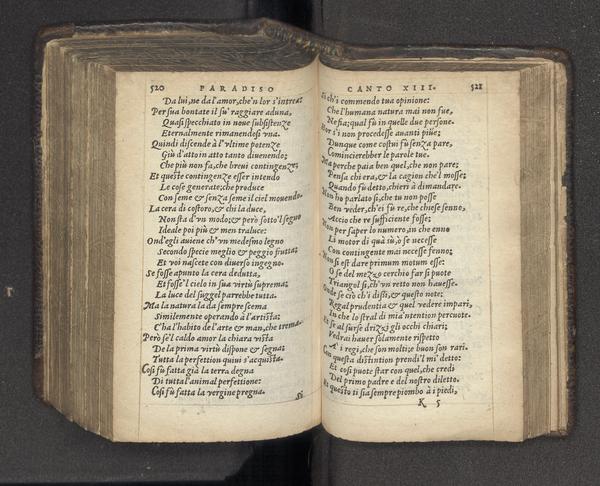 520 PARADISO
Da lui, ne da l'amor, che'n lor s'intrea:
Per sua bontate il su' raggiare aduna,
Quasi specchiato in noue subsistenze
Eternalmente rimanendosi vna.
Quindi discende à l'vltime potenze
Giù d'atto in atto tanto diuenendo;
Che più non fa, che breui contingenze;
Et queste contingenze esser intendo
Le cose generate; che produce
Con seme & senza seme il ciel mouendo.
La cera di costoro, & chi la duce,
Non sta d'vn modo; & però sotto'l segno
Ideale poi più & men traluce:
Ond'egli auiene ch'vn medesmo legno
Secondo specie meglio & peggio frutta:
Et voi nascete con diuerso ingegno.
Se fosse apunto la cera dedutta,
Et fosse'l cielo in sua virtù suprema;
La luce del suggel parrebbe tutta.
Ma la natura la da sempre scema
Similemente operando à l'artista;
C'ha l'habito de l'arte & man, che trema.
Però se'l caldo amor la chiara vista
De la prima virtù dispone & segna;
Tutta la perfettion quiui s'acquista.
Cosi fù fatta già la terra degna
Di tutta l'animal perfettione:
Cosi fù fatta la vergine pregna.
Si
CANTO XIII. 521
Si ch'i commendo tua opinione:
Che l'humana natura mai non fue,
Ne fia; qual fù in quelle due persone.
Hor s'i non procedesse auanti piùe;
Dunque come costui fù senza pare,
Comincierebber le parole tue.
Ma perche paia ben quel, che non pare;
Pensa chi era, & la cagion che'l mosse;
Quando fù detto, chieri à dimandare.
Non ho parlato si, che tu non posse
Ben veder, ch'ei fù re, che chiese senno,
Accio che re sufficiente fosse;
Non per saper lo numero, in che enno
Li motor di quà sù, ò se necesse
Con contingente mai necesse fenno;
Non si est dare primum motum esse:
O se del mezzo cerchio far si puote
Triangol si, ch'vn retto non hauesse.
Onde se ciò ch'i dissi, & questo note:
Regal prudentia & quel vedere impari,
In che lo stral di mia'ntention percuote.
Et se al surse drizzi gli occhi chiari;
Vedrai hauer solamente rispetto
A' i regi, che son molti; e buon son rari.
Con questa distintion prendi'l mi' detto:
Et cosi puote star con quel, che credi
Del primo padre e del nostro diletto.
Et questo ti sia sempre piombo à i piedi,
K 5